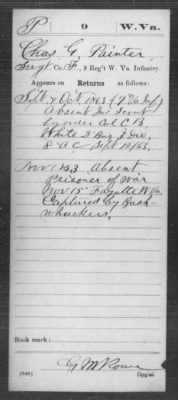 P 9 W. Va.
Chas G. Painter,
Sergt, Co. F, 9 Reg't W. Va. Infantry.
Appears on Returns as follows:
Sept & Oct. 1863 (9 Va Inf.)
Absent In Scout
under Col C. B.
White 2 Brig 3 Div.
8" A C Sept 12/63.
Nov 1863 Absent
Prisoner of War
Nov 15" Fayette W Va
Captured by Bush-
whackers.
Book mark:
(649) Copyist.